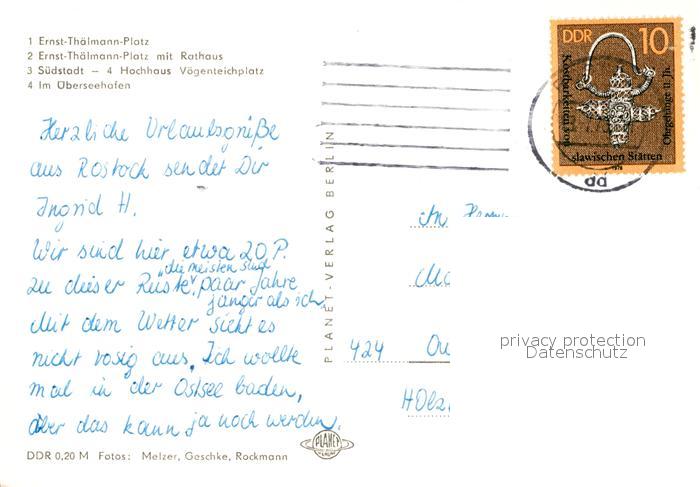 1 Ernst-Thälmann-Platz
2 Ernst-Thälmann-Platz mit Rathaus
3 Südstadt – 4 Hochhaus Vögenteichplatz
4 Im Überseehafen
Herzliche Urlaubsgrüße
aus Rostock sendet Dir
Ingrid H.
Wir sind hier etwa 20 P.
zu dieser
"die meisten sind
paar Jahre
jünger als ich
Mit dem Wetter sieht es
nicht rosig aus. Ich wollte
mal in der Ostsee baden,
aber das kann ja noch werden.
DDR 0,20 M Fotos: Melzer, Geschke, Rockmann
PLANET-VERLAG BERLIN
PLANET
DDR 10
Kostbarkeiten von
slawischen Stätten
Ohrgehänge 11. Jh.
1978
An
424
privacy protection
Datenschutz